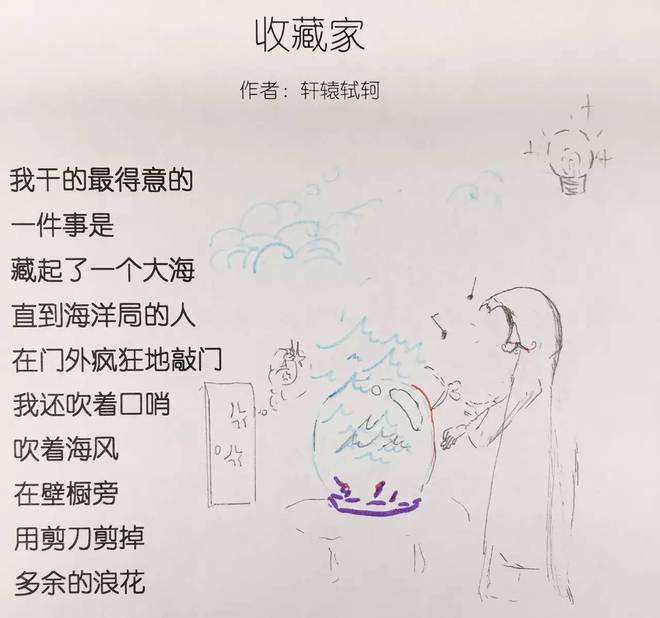 收藏家
作者：轩辕轼轲
我干的最得意的
一件事是
藏起了一个大海
直到海洋局的人
在门外疯狂地敲门
我还吹着口哨
吹着海风
在壁橱旁
用剪刀剪掉
多余的浪花